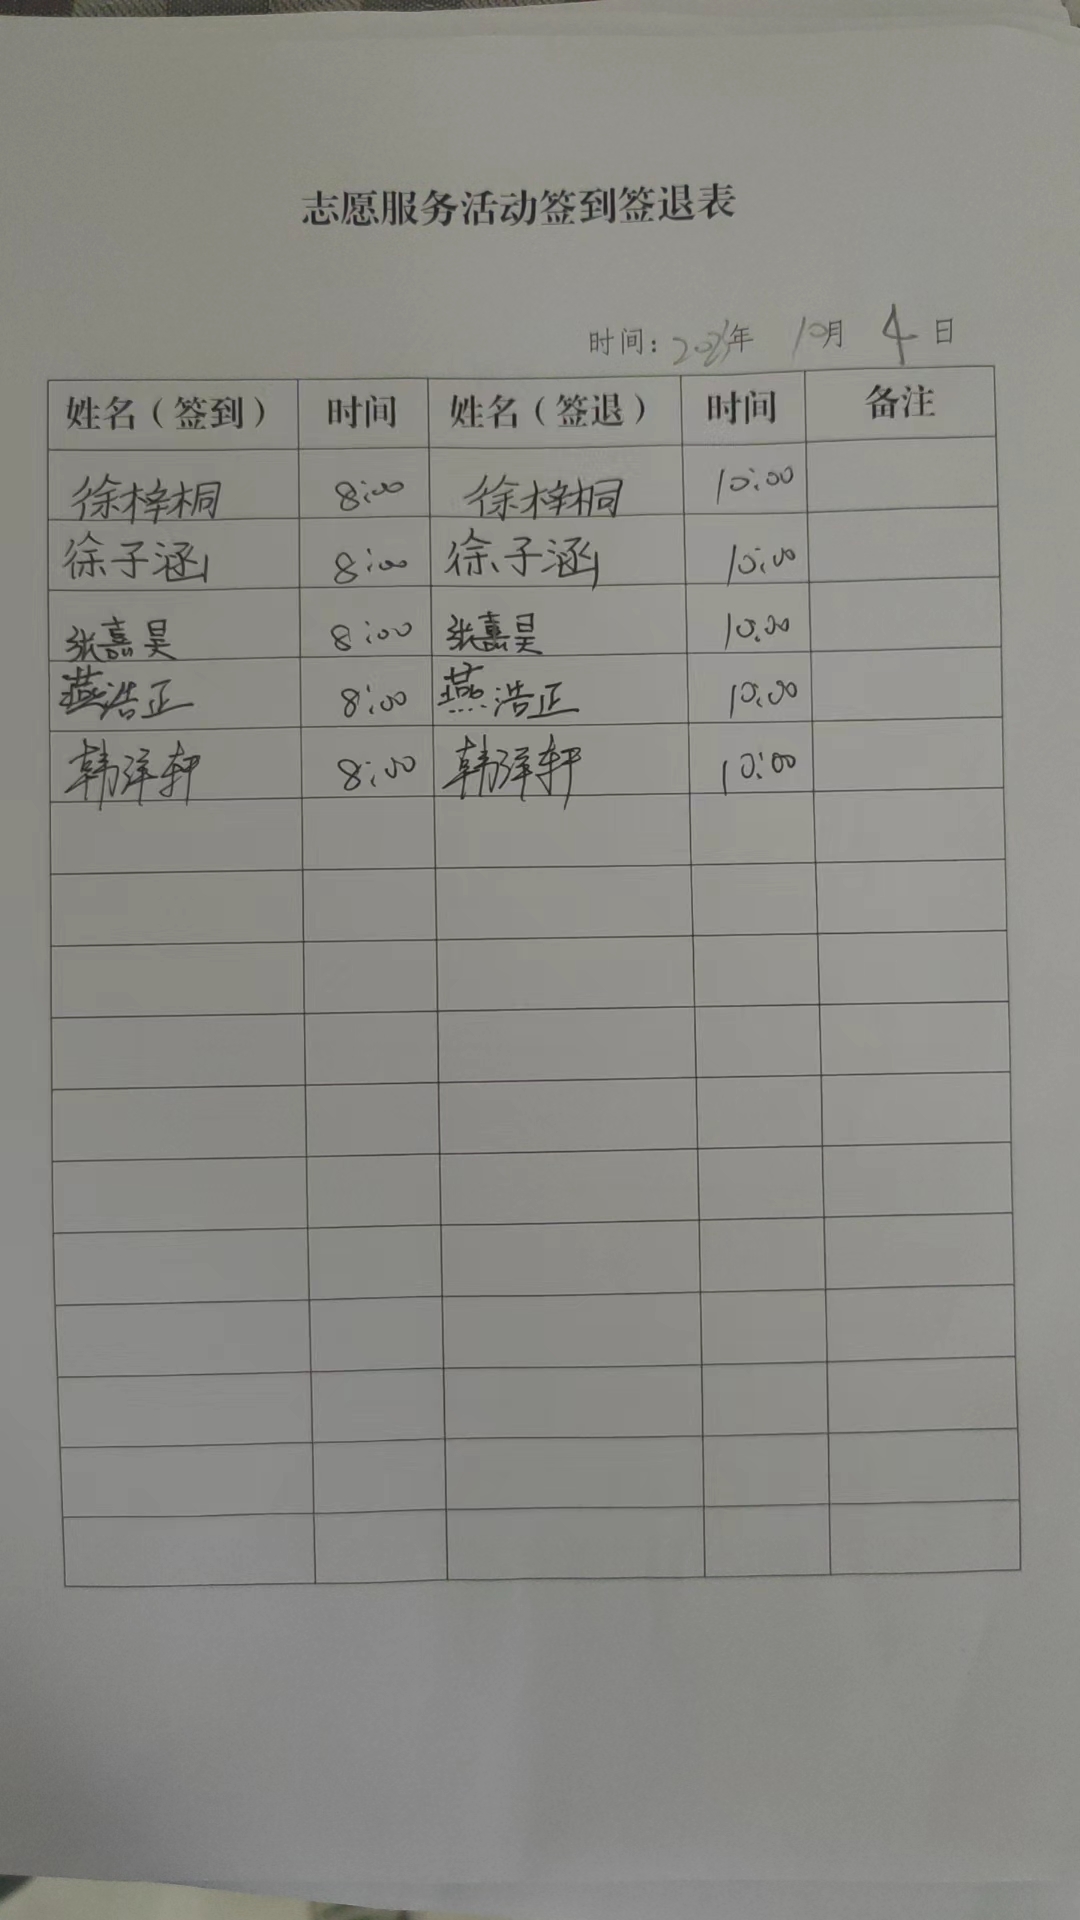 志愿服务活动签到签退表
时间: 年 10月 4日
姓名（签到） 时间 姓名（签退） 时间 备注
徐梓桐 8:00 徐梓桐 10:00
徐子涵 8:00 徐子涵 10:00
张嘉昊 8:00 张嘉昊 10:00
燕浩正 8:00 燕浩正 10:00
韩洋轩 8:00 韩洋轩 10:00